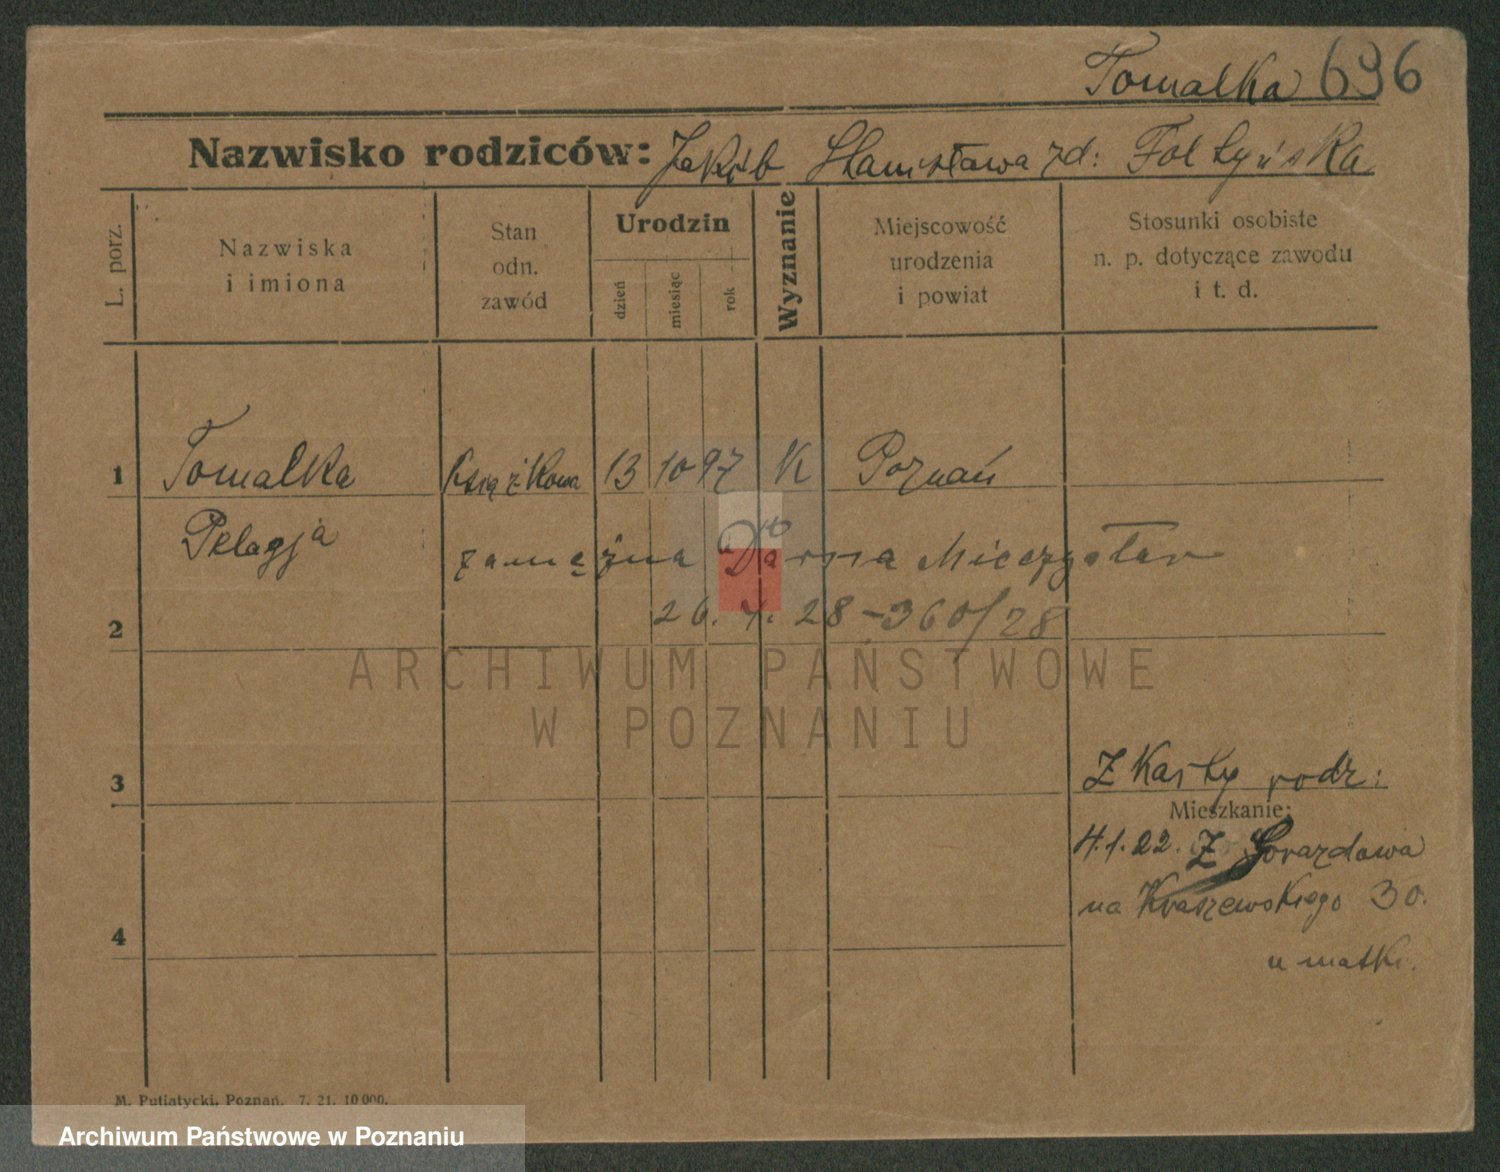 Tomalka 696
Nazwisko rodziców: Jakób Stanisława zd: Foltyńska
L. porz.
Nazwiska
i imiona
Stan
odn.
zawód
Urodzin
dzień
miesiąc
rok
Wyznanie
Miejscowość
urodzenia
i powiat
Stosunki osobiste
n. p. dotyczące zawodu
i t. d.
1 Tomalka Książkowa 13 10 97 K Poznań
Pelagja
zamężna Mieczysław
2 26. 4. 28 - 360/28
ARCHIWUM PAŃSTWOWE
W POZNANIU
3 Z Karty rodz:
Mieszkanie:
4.1.22. Z Gorazdowa
na Kraszewskiego 30.
4
u matki.
M. Putiatycki, Poznań. 7. 21. 10 000.
Archiwum Państwowe w Poznaniu